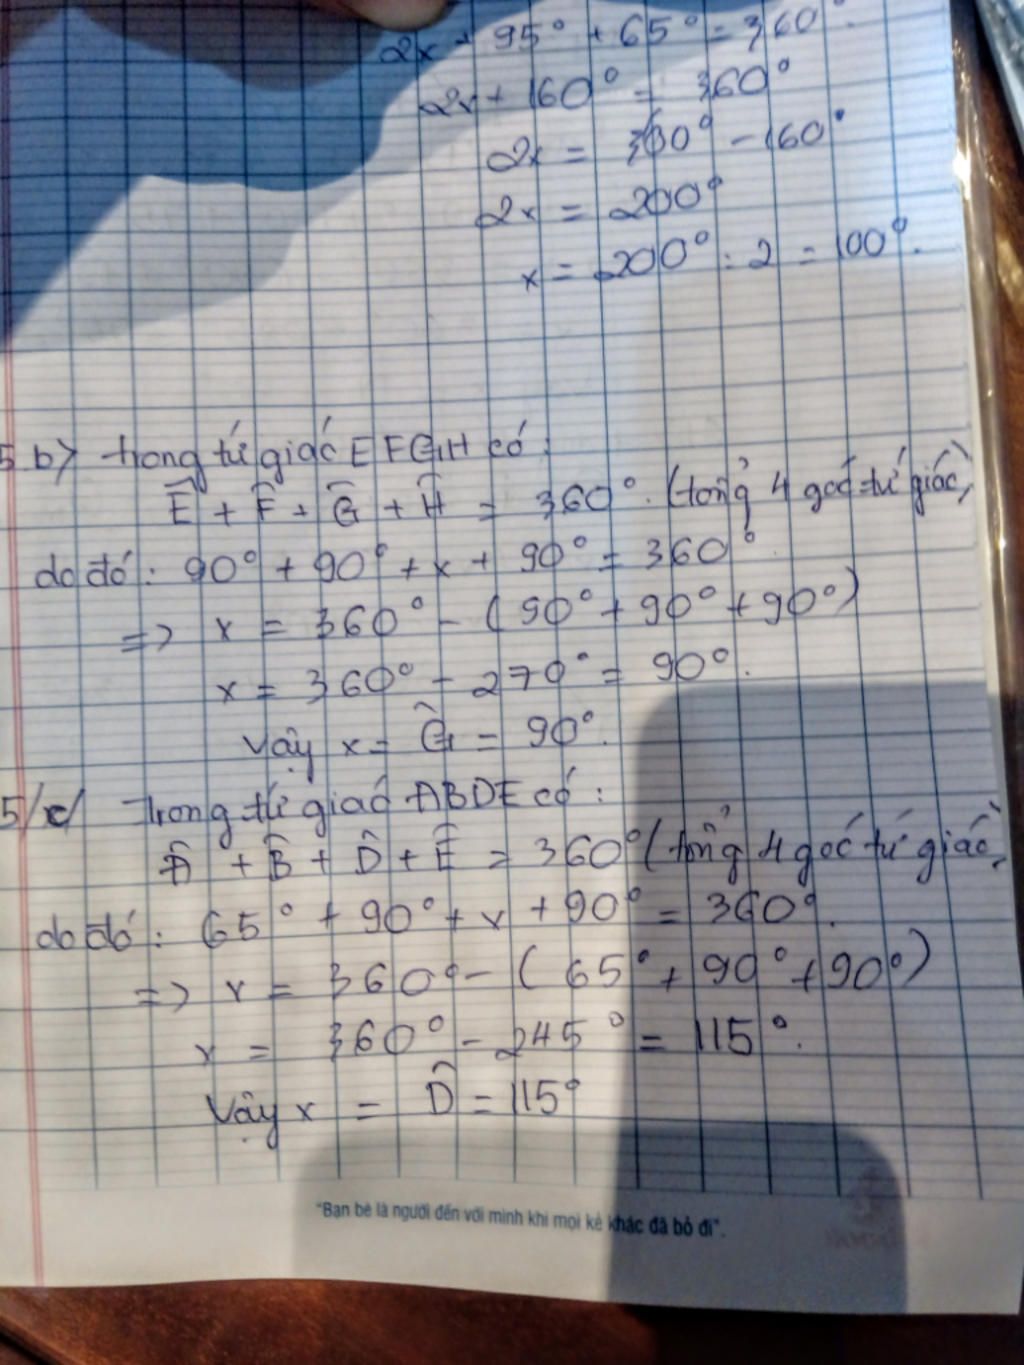 2x + 95° + 65° = 360°.
2x + 160° = 360°
2x = 360° - 160°
2x = 200°
x = 200° : 2 = 100°.
5 b) trong tứ giác EFGH có:
Ê + F̂ + Ĝ + Ĥ = 360°. (tổng 4 góc tứ giác)
do đó: 90° + 90° + x + 90° = 360°
=> x = 360° - (90° + 90° + 90°)
x = 360° - 270° = 90°.
Vậy x = Ĝ = 90°.
5/c/ Trong tứ giác ABDE có:
Â + B̂ + D̂ + Ê = 360° (tổng 4 góc tứ giác)
do đó: 65° + 90° + x + 90° = 360°.
=> x = 360° - (65° + 90° + 90°)
x = 360° - 245° = 115°.
Vậy x = D̂ = 115°
"Bạn bè là người đến với mình khi mọi kẻ khác đã bỏ đi".